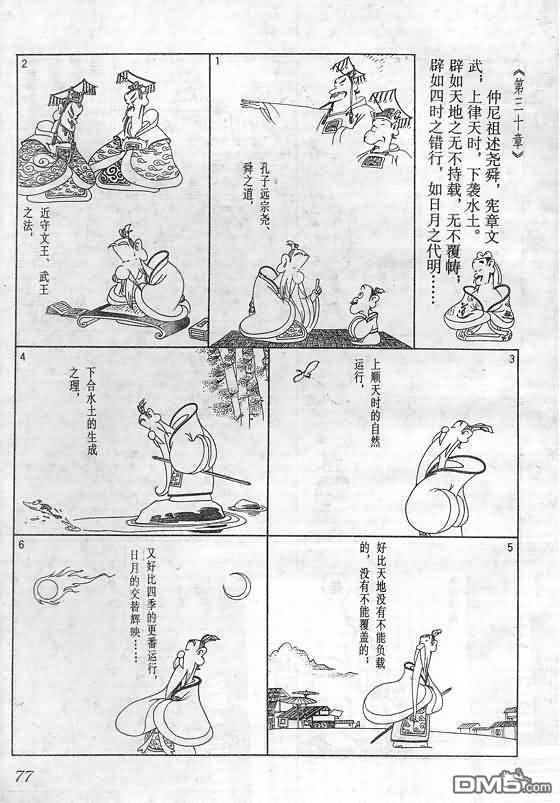 《第三十章》
仲尼祖述尧舜，宪章文
武；上律天时，下袭水土。
辟如天地之无不持载，无不覆帱，
辟如四时之错行，如日月之代明……
1
孔子远宗尧、
舜之道，
2
近守文王、武王
之法，
3
上顺天时的自然
运行，
4
下合水土的生成
之理，
5
好比天地没有不能负载
的，没有不能覆盖的；
6
又好比四季的更番运行，
日月的交替辉映……
77
DM5.com